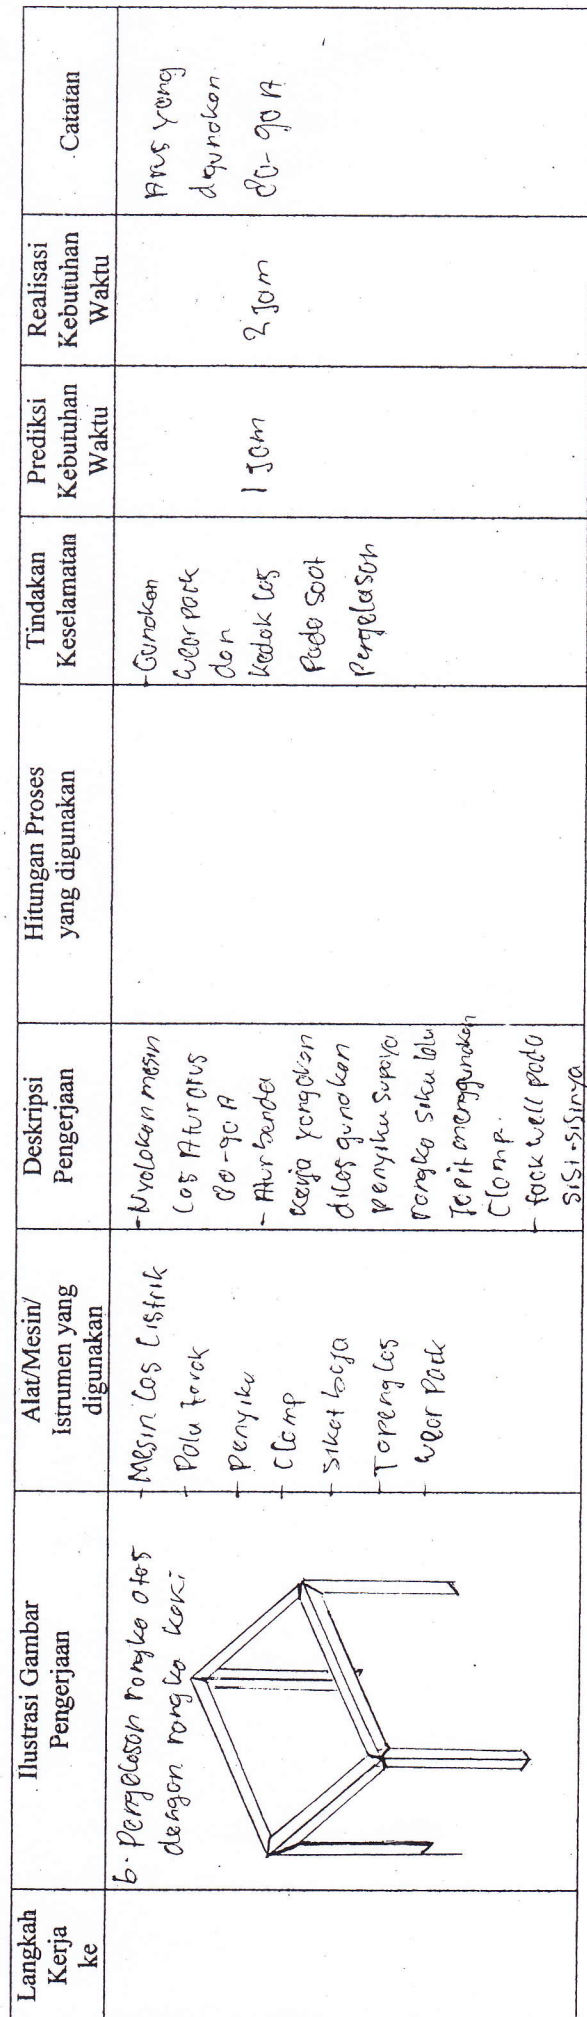 Langkah
Kerja
ke
Ilustrasi Gambar
Pengerjaan
Alat/Mesin/
Istrumen yang
digunakan
Deskripsi
Pengerjaan
Hitungan Proses
yang digunakan
Tindakan
Keselamatan
Prediksi
Kebutuhan
Waktu
Realisasi
Kebutuhan
Waktu
Catatan
b. Pengelasan rangka atas
dengan rangka kaki
- Mesin Las Listrik
- Palu terak
- Penyiku
- Clamp
- Sikat baja
- Topeng Las
- Wear Pack
- Nyalakan mesin
Las Atur arus
80-90 A
- Atur benda
kerja yang akan
dilas gunakan
penyiku supaya
rangka siku lalu
Jepit menggunakan
Clamp.
- tack well pada
sisi-sisinya
- Gunakan
wear pack
dan
kedok las
Pada saat
Pengelasan
1 Jam
2 Jam
Arus yang
digunakan
80-90 A